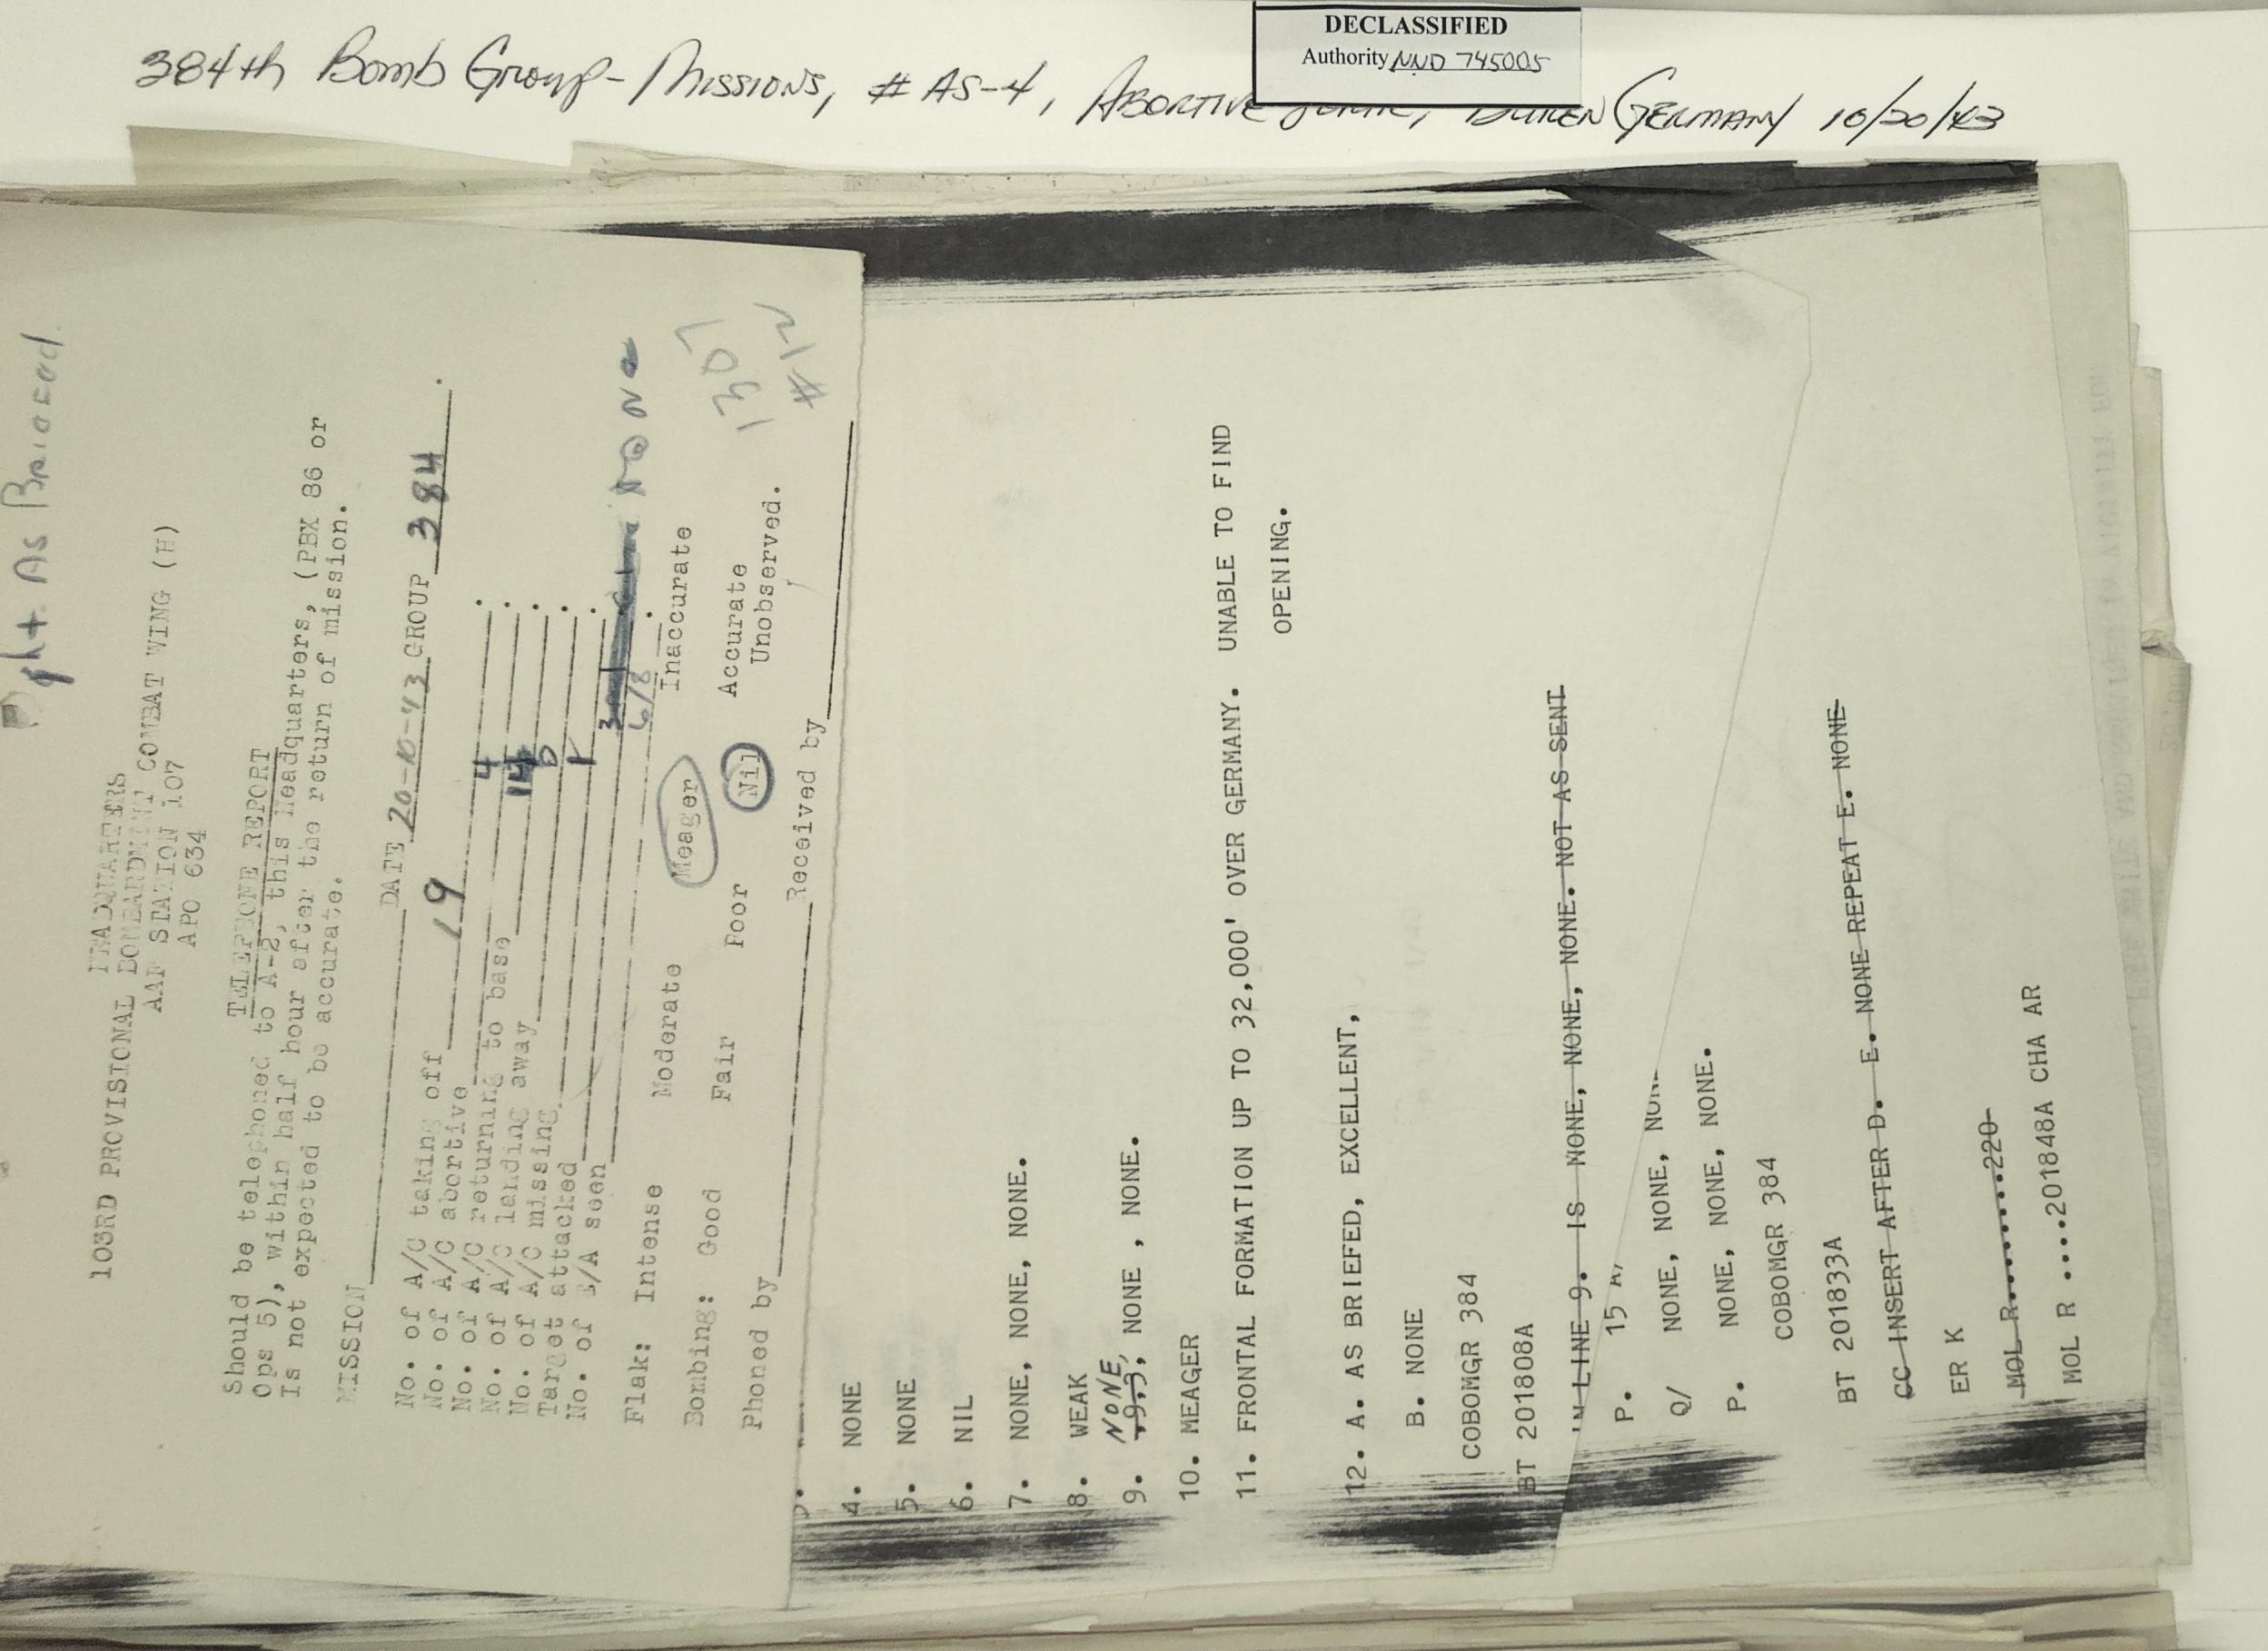 DECLASSIFIED
Authority NND 745005
384th Bomb Group - Missions, # AS-4, ABORTIVE GERMANY 10/20/43
ght As Briefed
HEADQUARTERS
103RD PROVISIONAL BOMBARDMENT COMBAT WING (H)
AAF STATION 107
APO 634
TELEPHONE REPORT
Should be telephoned to A-2, this Headquarters, (PBX 86 or
Ops 5), within half hour after the return of mission.
Is not expected to be accurate.
MISSION DATE 20-10-43 GROUP 384.
No. of A/C taking off 19
No. of A/C abortive 4.
No. of A/C returning to base 14.
No. of A/C landing away 0.
No. of A/C missing 1.
Target attacked none
No. of E/A seen 6/8.
Flak: Intense Moderate Meager Inaccurate
Bombing: Good Fair Poor Nil Accurate
Unobserved.
1307
#12
Phoned by Received by
4. NONE
5. NONE
6. NIL
7. NONE, NONE, NONE.
8. WEAK
9. NONE, NONE , NONE.
10. MEAGER
11. FRONTAL FORMATION UP TO 32,000' OVER GERMANY. UNABLE TO FIND
OPENING.
12. A. AS BRIEFED, EXCELLENT,
B. NONE
COBOMGR 384
BT 201808A
IN LINE 9. IS NONE, NONE, NONE, NONE. NOT AS SENT
P. 15
Q/ NONE, NONE,
P. NONE, NONE, NONE.
COBOMGR 384
BT 201833A
CC INSERT AFTER D. E. NONE REPEAT E. NONE
ER K
MOL R.........220
MOL R ....201848A CHA AR